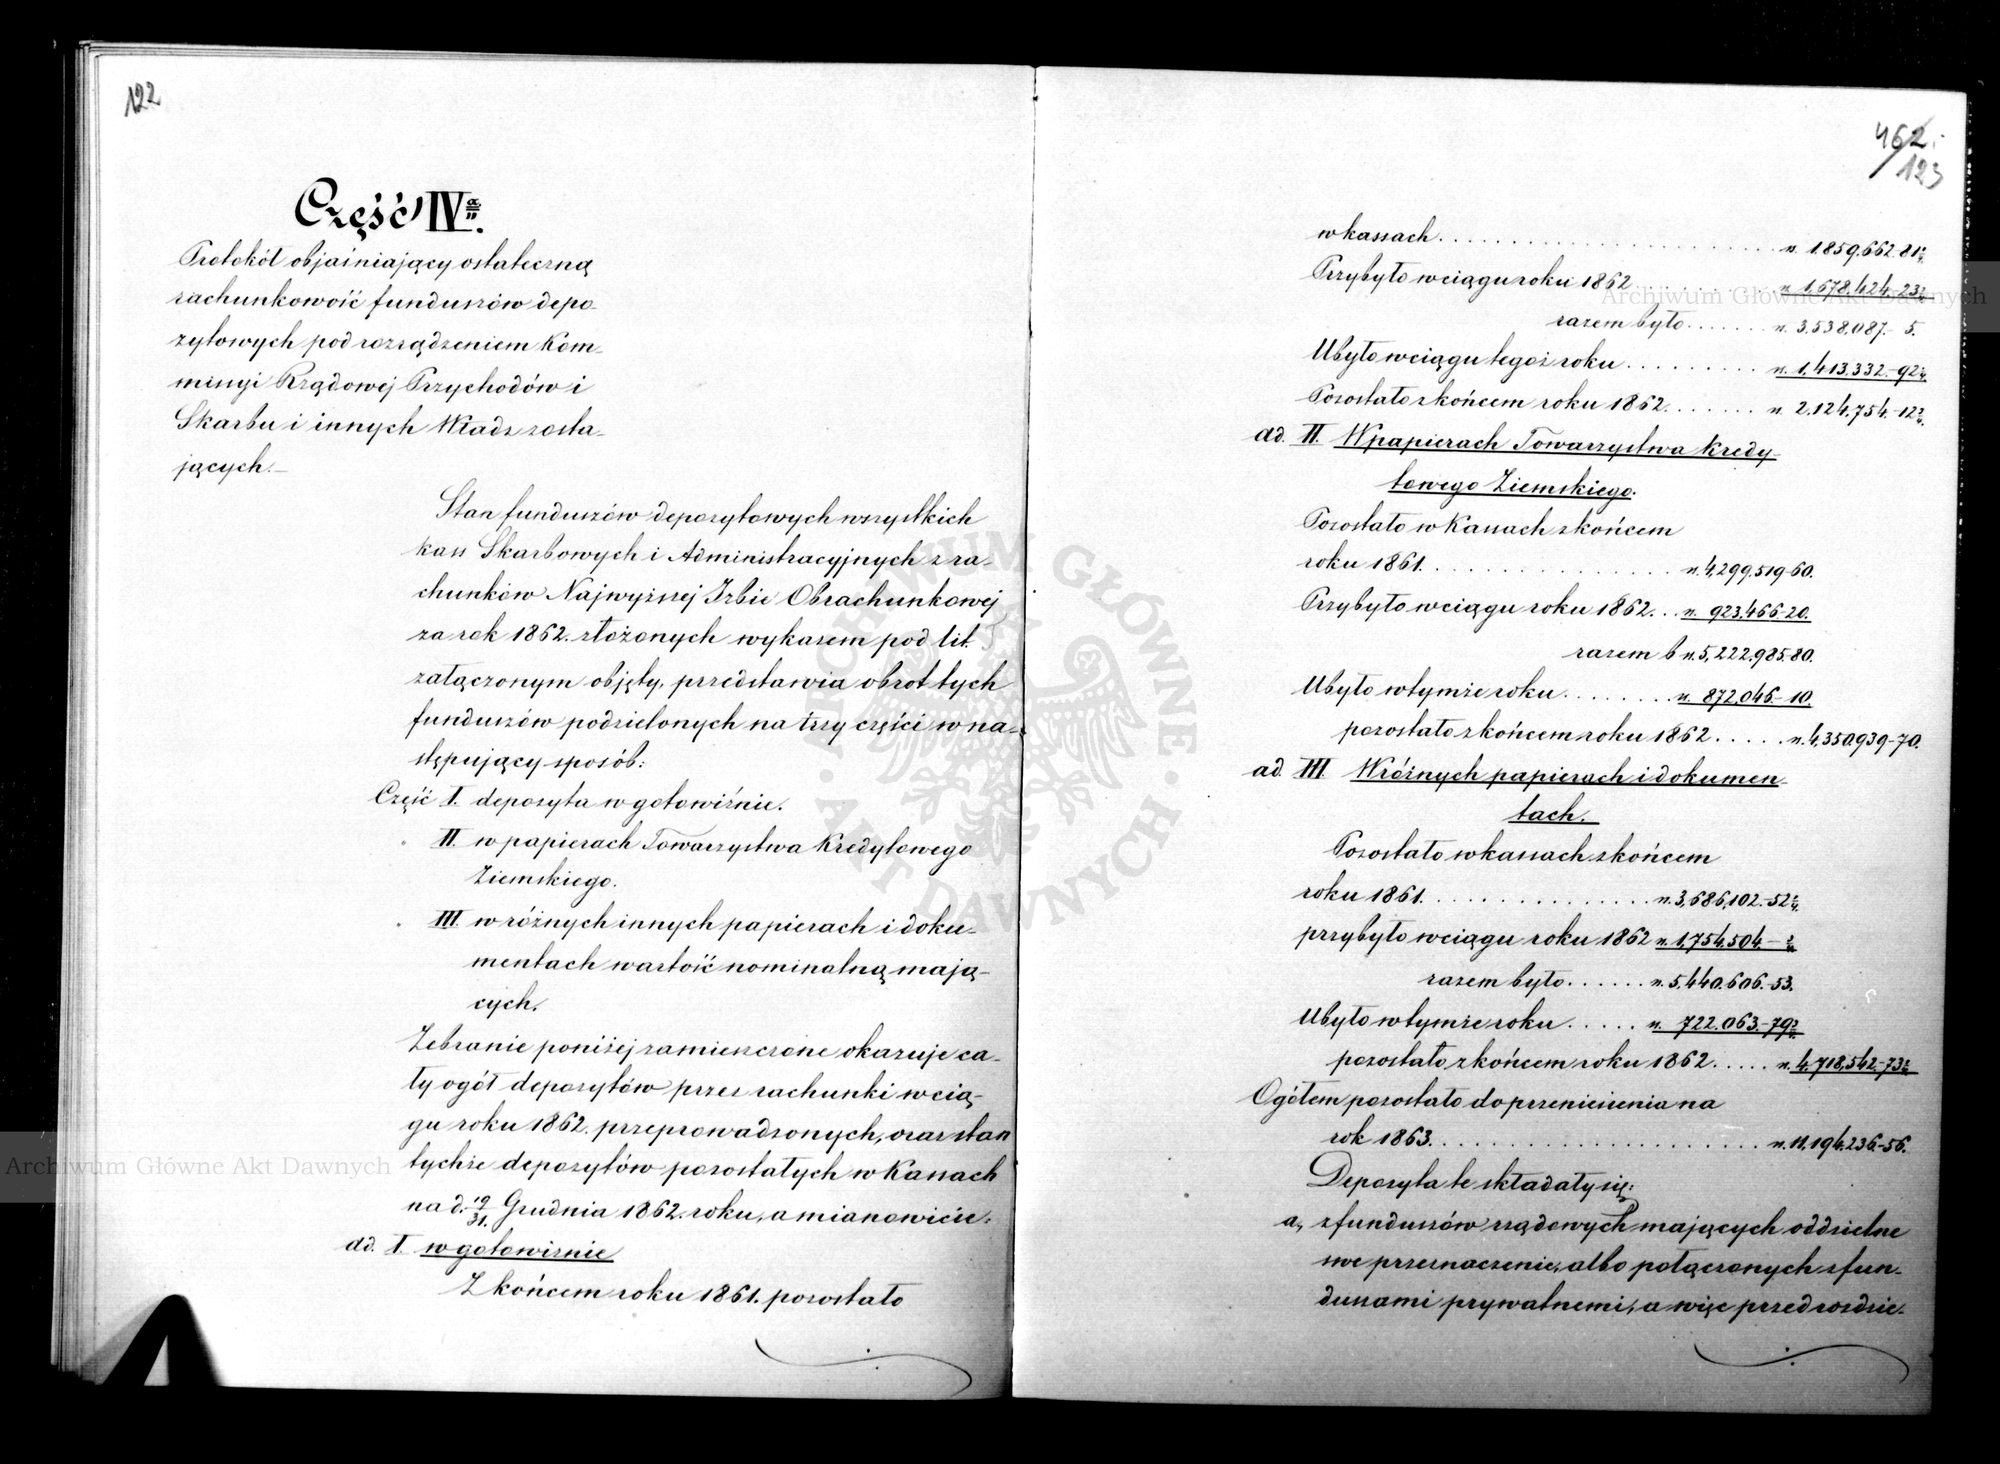 122
Część IVa.
Protokół objaśniający ostateczną
rachunkowość funduszów depo-
zytowych pod rozrządzeniem Kom-
missyi Rządowej Przychodów i
Skarbu i innych Władz zosta-
jących.—
Stan funduszów depozytowych wszystkich
kass Skarbowych i Administracyjnych z ra-
chunków Najwyższej Izbie Obrachunkowej
za rok 1862. złożonych wykazem pod lit.
załączonym objęty, przedstawia obrot tych
funduszów podzielonych na trzy części w na-
stępujący sposób:
Część I. depozyta w gotowiźnie.
" II. w papierach Towarzystwa Kredytowego
Ziemskiego.
" III w różnych innych papierach i doku-
mentach wartość nominalną mają-
cych.
Zebranie poniżej zamieszczone okazuje ca-
ły ogół depozytów przez rachunki w cią-
gu roku 1862. przeprowadzonych, oraz stan
tychże depozytów pozostałych w Kassach
na d. 19/31. Grudnia 1862. roku, a mianowicie:
ad. I. w gotowiznie
Z końcem roku 1861. pozostało
462.
123
w kassach . . . . . rs. 1.859.662. 81 1/2.
Przybyło w ciągu roku 1862 . . . . . rs. 1,678,424.-23
razem było . . . . . rs. 3,538,087.- 5.
Ubyło w ciągu tegoż roku . . . . . rs. 1,413,332.-92
Pozostało z końcem roku 1862 . . . . . rs. 2,124,754.-12
ad. II. W papierach Towarzystwa Kredy-
towego Ziemskiego.
Pozostało w Kassach z końcem
roku 1861. . . . . . rs. 4,299,519-60.
Przybyło w ciągu roku 1862. . . rs. 923,466-20.
razem b rs. 5,222,985.80.
Ubyło w tymże roku . . . . . rs. 872,046-10.
pozostało z końcem roku 1862 . . . . . rs. 4,350,939-70.
ad. III. W różnych papierach i dokumen-
tach.
Pozostało w kassach z końcem
roku 1861. . . . . . rs. 3,686,102.-52
przybyło w ciągu roku 1862 rs. 1,754,504.-
razem było . . . . . rs. 5,440.606.-53.
Ubyło w tymże roku . . . . . rs. 722.063.-79
pozostało z końcem roku 1862 . . . . . rs. 4,718,542.-73
Ogółem pozostało do przeniesienia na
rok 1863. . . . . . rs. 11,194,236.-56.
Depozyta te składały się:
a, z funduszów rządowych mających oddzielne
swe przeznaczenie, albo połączonych z fun-
duszami prywatnemi, a więc przed rozdzie-
Archiwum Główne Akt Dawnych
Archiwum Główne Akt Dawnych
ARCHIWUM GŁÓWNE · AKT DAWNYCH ·